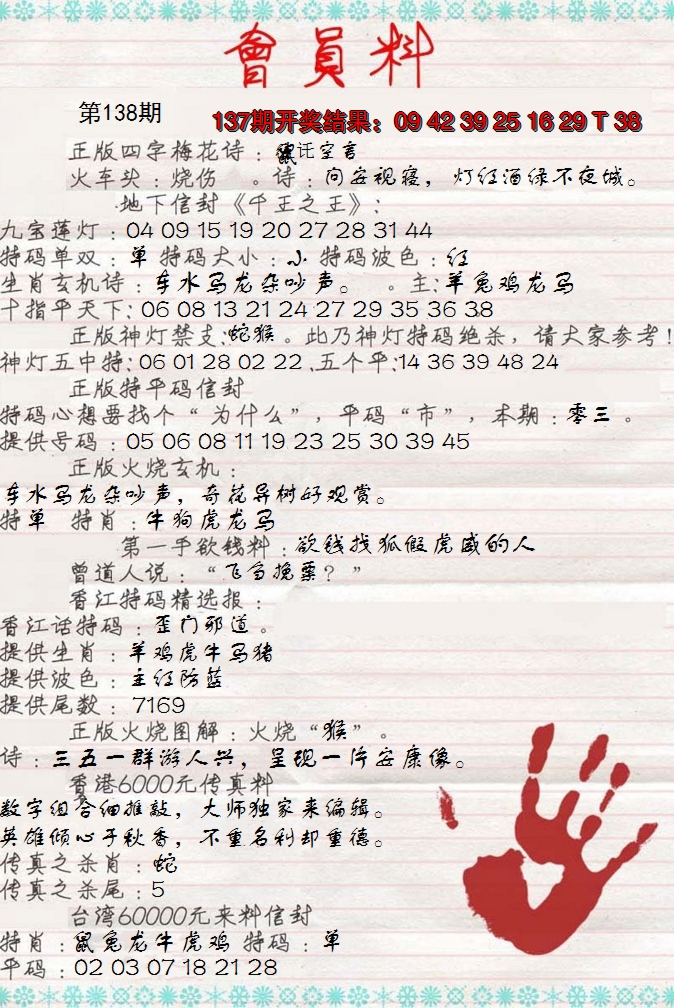 會員料
第138期
137期开奖结果：09 42 39 25 16 29 T 38
正版四字梅花诗：讬空言
火车头：烧伤 。诗：向安视寝，灯红酒绿不夜城。
地下信封《千王之王》：
九宝莲灯：04 09 15 19 20 27 28 31 44
特码单双：单 特码大小：小 特码波色：红
生肖玄机诗：车水马龙杂吵声。 。主：羊兔鸡龙马
十指平天下：06 08 13 21 24 27 29 35 36 38
正版神灯禁支：蛇猴。此乃神灯特码绝杀，请大家参考！
神灯五中特：06 01 28 02 22 .五个平：14 36 39 48 24
正版特平码信封
特码心想要找个“为什么”，平码“市”，本期：零三。
提供号码：05 06 08 11 19 23 25 30 39 45
正版火烧玄机：
车水马龙杂吵声，奇花异树好观赏。
特单 特肖：牛狗虎龙马
第一手欲钱料：欲钱找狐假虎威的人
曾道人说：“飞刍挽粟？”
香江特码精选报：
香江话特码：歪门邪道。
提供生肖：羊鸡虎牛马猪
提供波色：主红防蓝
提供尾数：7169
正版火烧图解：火烧“猴”。
诗：三五一群游人兴，呈现一片安康像。
香港6000元传真料
数字组合细推敲，大师独家来编辑。
英雄倾心于秋香，不重名利却重德。
传真之杀肖：蛇
传真之杀尾：5
台湾60000元来料信封
特肖：鼠兔龙牛虎鸡 特码：单
平码：02 03 07 18 21 28